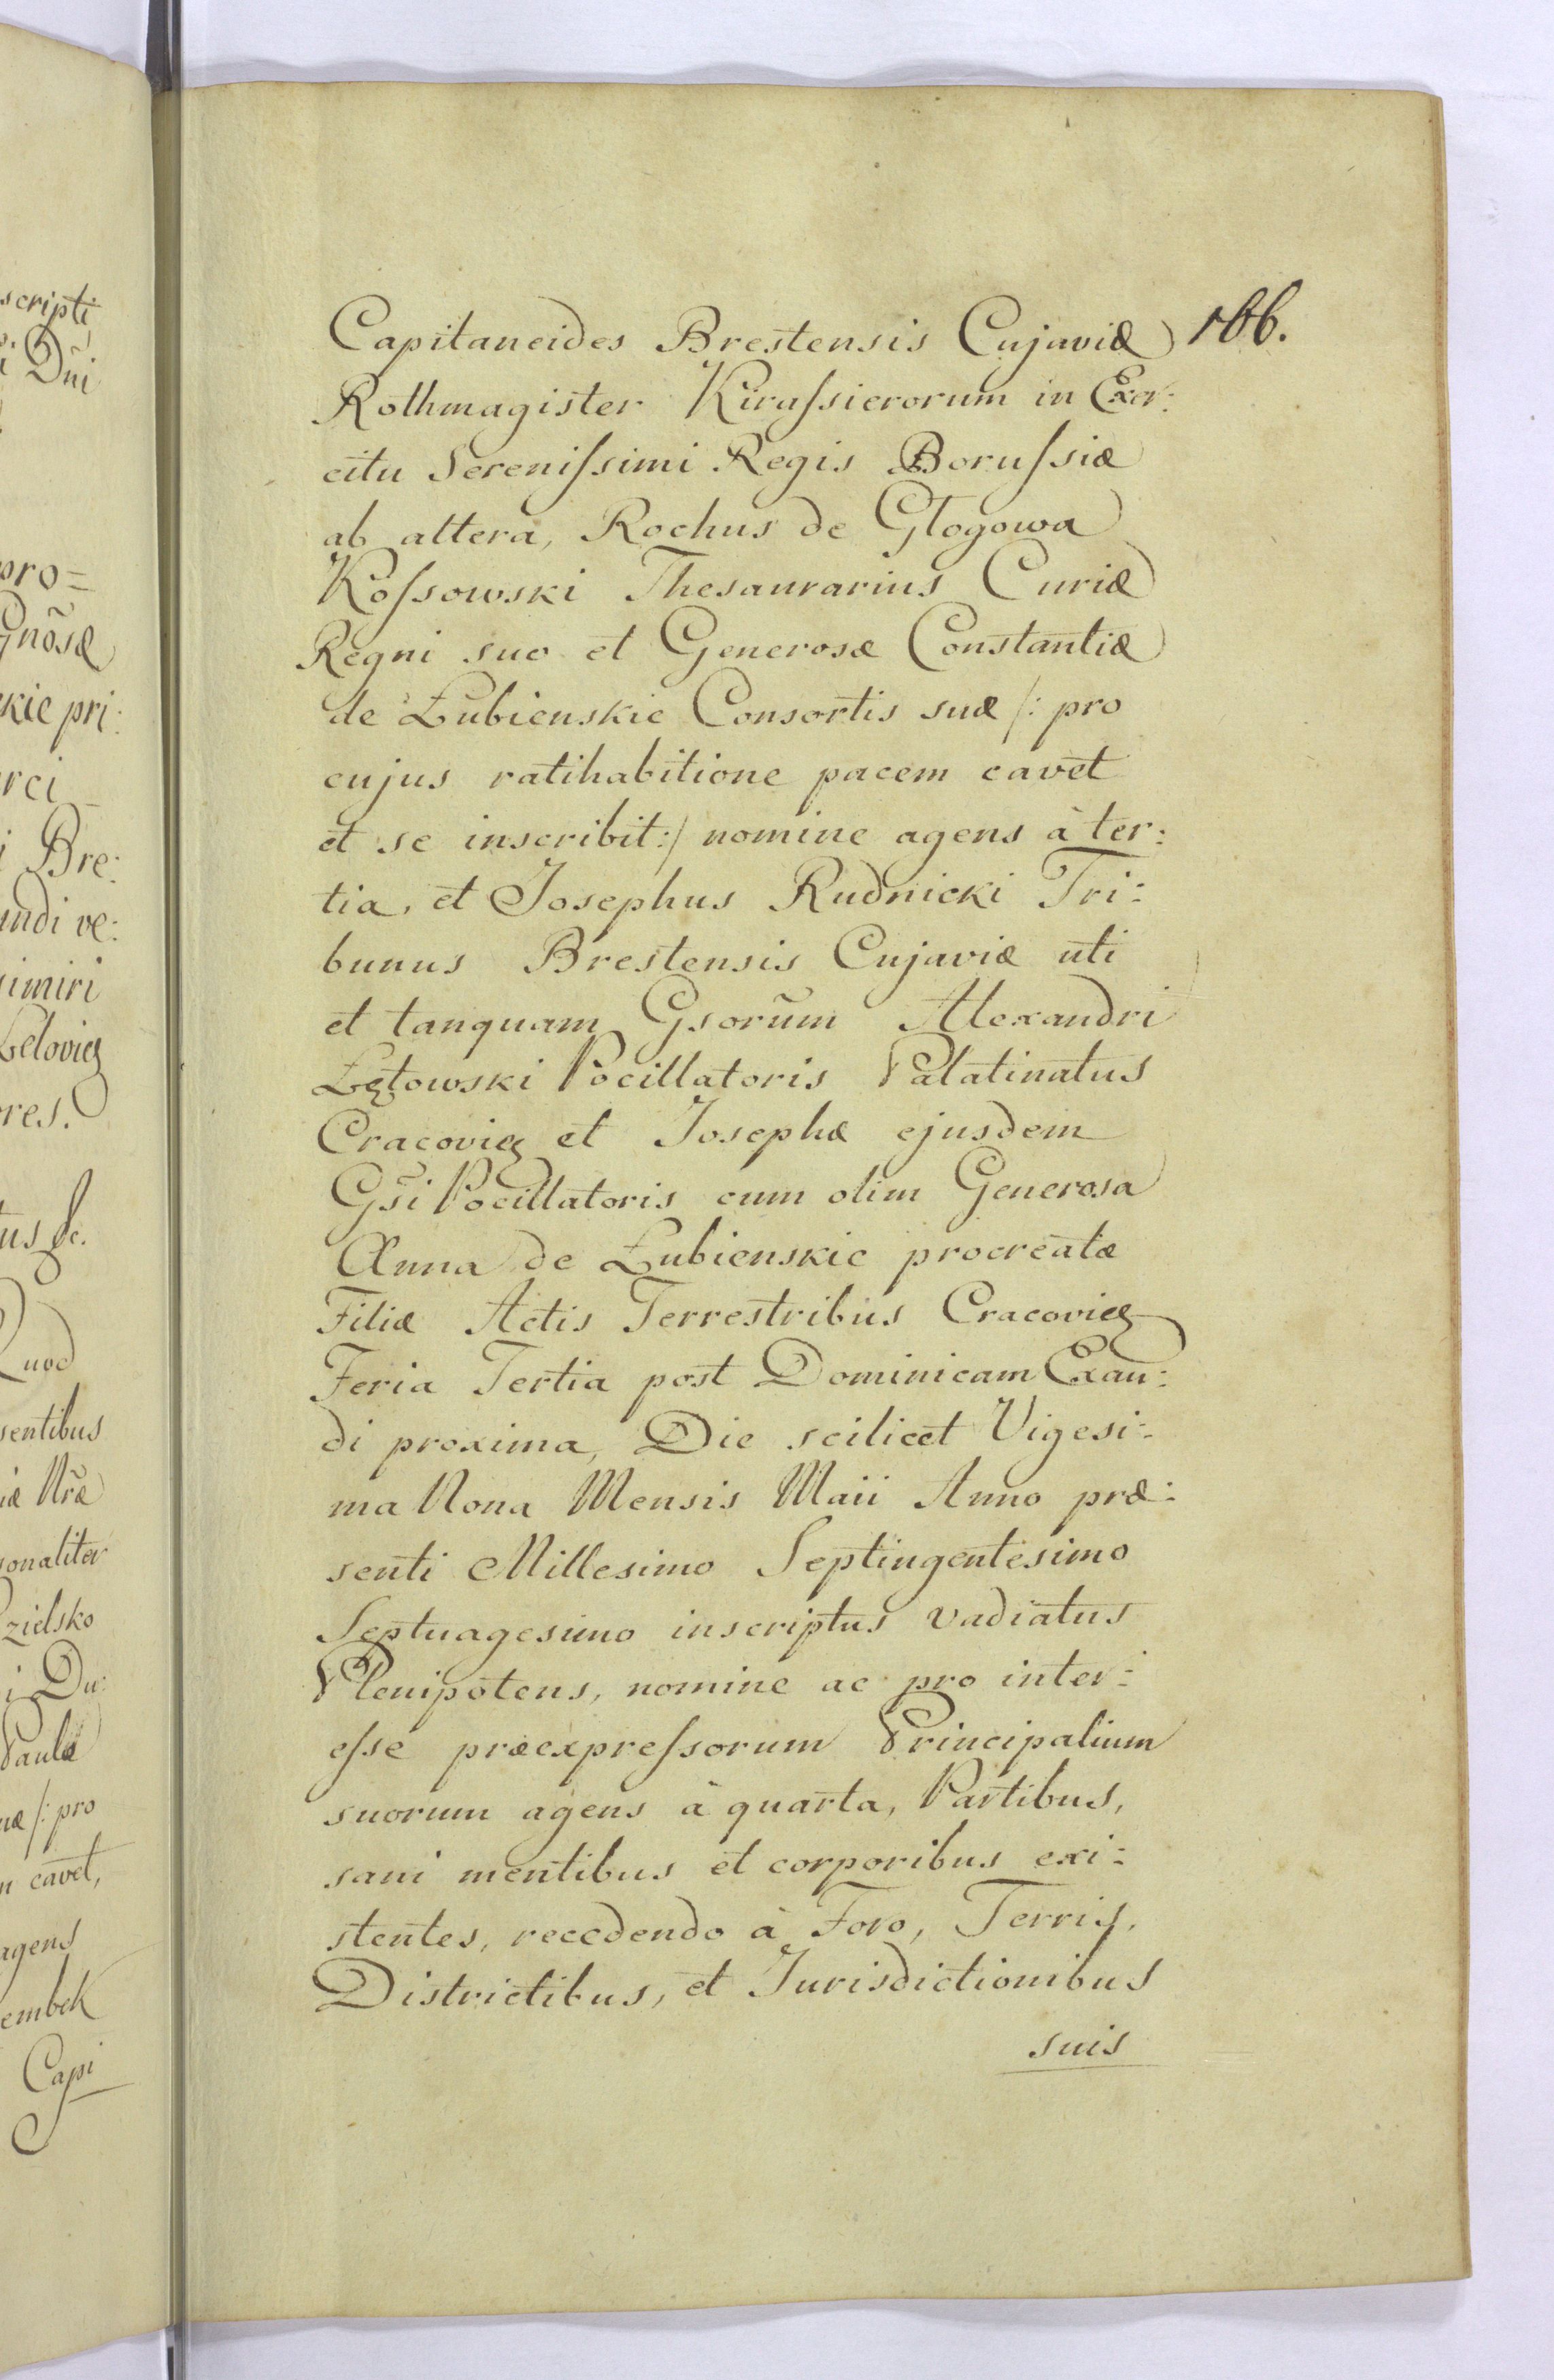 166.
Capitaneides Brestensis Cujaviæ
Rothmagister Kiraſsierorum in Exer:
citu Sereniſsimi Regis Boruſsiæ
ab altera, Rochus de Głogowa
Koſsowski Thesaurarius Curiæ
Regni suo et Generosæ Constantiæ
de Łubienskie Consortis suæ /: pro
cujus ratihabitione pacem cavet
et se inscribit :/ nomine agens à ter:
tia, et Josephus Rudnicki Tri:
bunus Brestensis Cujaviæ uti
et tanquam Gsorũm Alexandri
Łętowski Pocillatoris Palatinatus
Cracovię et Josephæ ejusdem
Gsĩ Pocillatoris cum olim Generosa
Anna de Łubienskie procreatæ
Filiæ Actis Terrestribus Cracovię
Feria Tertia post Dominicam Exau:
di proxima, Die scilicet Vigesi:
ma Nona Mensis Maii Anno præ:
senti Millesimo Septingentesimo
Septuagesimo inscriptus vadiatus
Plenipotens, nomine ac pro inter:
eſse præexpreſsorum Principalium
suorum agens à quarta, Partibus,
sani mentibus et corporibus exi:
stentes, recedendo à Foro, Terris,
Districtibus, et Jurisdictionibus
suis
scripti
Dñi
pro=
Gnõsæ
skie pri:
rci
Bre:
undi ve:
simiri
res.
tus &c.
Quod
sentibus
Nræ̃
sonaliter
zielsko
Du:
Paulæ
/: pro
cavet,
agens
embek
Capi